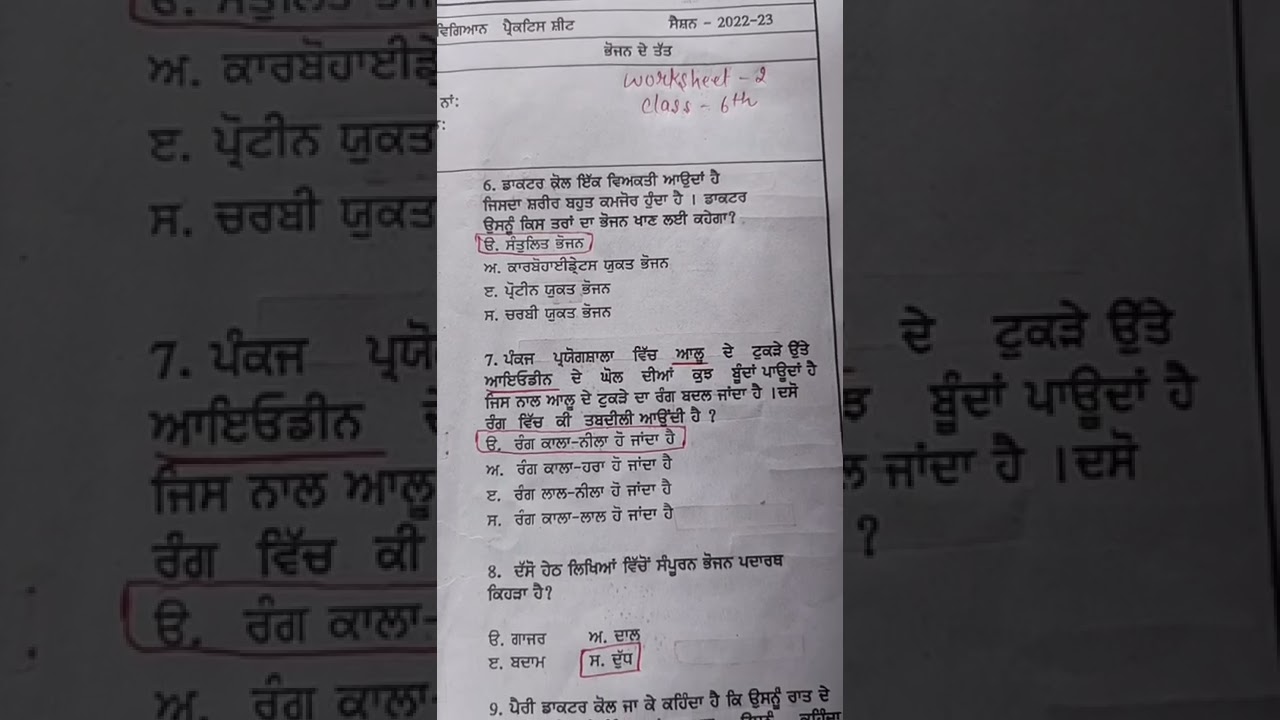 ਵਿਗਿਆਨ ਪ੍ਰੈਕਟਿਸ ਸ਼ੀਟ ਸੈਸ਼ਨ - 2022-23
ਭੋਜਨ ਦੇ ਤੱਤ
Worksheet - 2
Class - 6th
ਨਾਂ:
6. ਡਾਕਟਰ ਕੋਲ ਇੱਕ ਵਿਅਕਤੀ ਆਉਦਾਂ ਹੈ
ਜਿਸਦਾ ਸ਼ਰੀਰ ਬਹੁਤ ਕਮਜੋਰ ਹੁੰਦਾ ਹੈ । ਡਾਕਟਰ
ਉਸਨੂੰ ਕਿਸ ਤਰਾਂ ਦਾ ਭੋਜਨ ਖਾਣ ਲਈ ਕਹੇਗਾ?
ੳ. ਸੰਤੁਲਿਤ ਭੋਜਨ
ਅ. ਕਾਰਬੋਹਾਈਡ੍ਰੇਟਸ ਯੁਕਤ ਭੋਜਨ
ੲ. ਪ੍ਰੋਟੀਨ ਯੁਕਤ ਭੋਜਨ
ਸ. ਚਰਬੀ ਯੁਕਤ ਭੋਜਨ
7. ਪੰਕਜ ਪ੍ਰਯੋਗਸ਼ਾਲਾ ਵਿੱਚ ਆਲੂ ਦੇ ਟੁਕੜੇ ਉੱਤੇ
ਆਇਓਡੀਨ ਦੇ ਘੋਲ ਦੀਆਂ ਕੁਝ ਬੂੰਦਾਂ ਪਾਉਦਾਂ ਹੈ
ਜਿਸ ਨਾਲ ਆਲੂ ਦੇ ਟੁਕੜੇ ਦਾ ਰੰਗ ਬਦਲ ਜਾਂਦਾ ਹੈ ।ਦਸੋ
ਰੰਗ ਵਿੱਚ ਕੀ ਤਬਦੀਲੀ ਆਉਂਦੀ ਹੈ ?
ੳ. ਰੰਗ ਕਾਲਾ-ਨੀਲਾ ਹੋ ਜਾਂਦਾ ਹੈ
ਅ. ਰੰਗ ਕਾਲਾ-ਹਰਾ ਹੋ ਜਾਂਦਾ ਹੈ
ੲ. ਰੰਗ ਲਾਲ-ਨੀਲਾ ਹੋ ਜਾਂਦਾ ਹੈ
ਸ. ਰੰਗ ਕਾਲਾ-ਲਾਲ ਹੋ ਜਾਂਦਾ ਹੈ
8. ਦੱਸੋ ਹੇਠ ਲਿਖਿਆਂ ਵਿੱਚੋਂ ਸੰਪੂਰਨ ਭੋਜਨ ਪਦਾਰਥ
ਕਿਹੜਾ ਹੈ?
ੳ. ਗਾਜਰ ਅ. ਦਾਲ
ੲ. ਬਦਾਮ ਸ. ਦੁੱਧ
9. ਪੈਰੀ ਡਾਕਟਰ ਕੋਲ ਜਾ ਕੇ ਕਹਿੰਦਾ ਹੈ ਕਿ ਉਸਨੂੰ ਰਾਤ ਦੇ